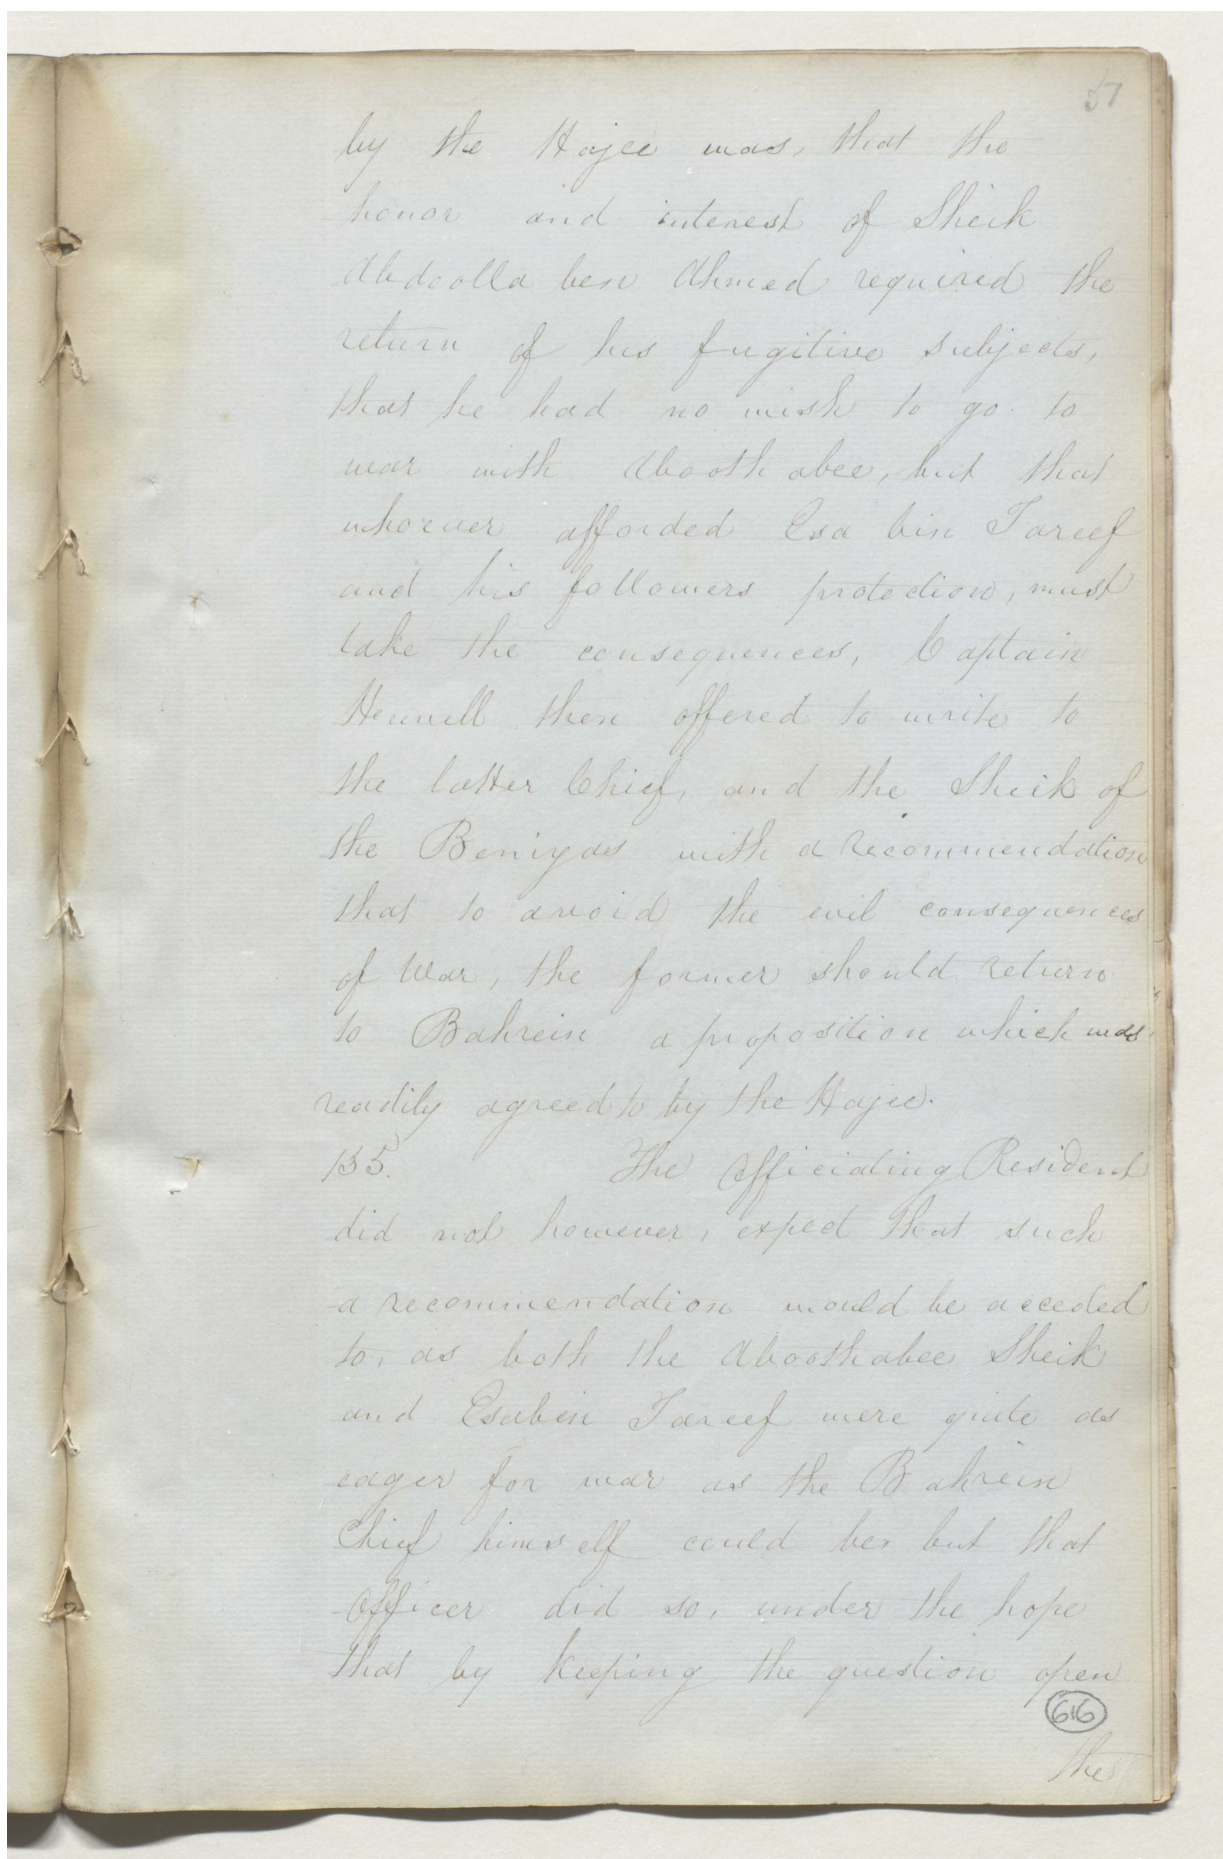 57
by the Hajee was, that the
honor and interest of Sheik
Abdoolla ben Ahmed required the
return of his fugitive subjects,
that he had no wish to go to
war with Aboothabee, but that
whoever afforded Esa bin Tareef
and his followers protection, must
take the consequences, Captain
Hennell then offered to write to
the latter Chief, and the Sheik of
the Beniyas with a recommendation
that to avoid the evil consequences
of War, the former should return
to Bahrein a proposition which was
readily agreed to by the Hajee.
135. The Officiating Resident
did not however, expect that such
a recommendation would be acceded
to, as both the Aboothabee Sheik
and Esabin Tareef were quite as
eager for war as the Bahrein
Chief himself could be, but that
Officer did so, under the hope
that by keeping the question open
616
the